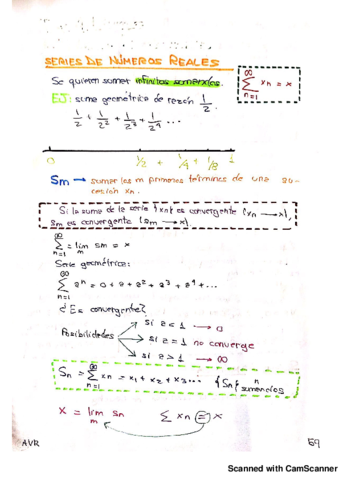 SERIES DE NÚMEROS REALES
Se quieren sumar infinitos sumandos.
∞
∑ xn = x
n=1
EJ: suma geométrica de razón 1/2.
1/2 + 1/2² + 1/2³ + 1/2⁴ ...
0 1/2 + 1/4 + 1/8 1
Sm → sumar los m primeros términos de una su-
cesión xn.
Si la suma de la serie {xn} es convergente (xn → x),
Sm es convergente (sm → x).
∞
∑ = lim sm = x
n=1 m
Serie geométrica:
∞
∑ aⁿ = a + a + a² + a³ + a⁴ + ...
n=1
¿Es convergente?
Posibilidades
si a < 1 → 0
si a = 1 no converge
si a > 1 → ∞
Sn = ∞∑n=1 xn = x1 + x2 + x3 ... {Sn} n sumandos
x = lim sn
m
∑ xn = x
AVR
59
Scanned with CamScanner